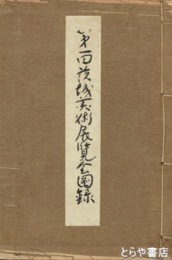 第一回茨城美術展覧会図録
とらや書店